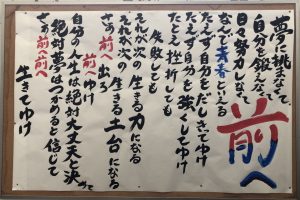 前へ
夢に挑まなくて
自分を鍛えなくて
日々努力しなくて
なんで青春といえる
たえず自分をだしきってゆけ
たえず自分を強くしてゆけ
たとえ挫折しても
失敗しても
それが次の生きる力になる
それが次の生きる土台になる
さあ前へ出ろ
さあ前へゆけ
自分の人生は絶対大丈夫と決めて
絶対夢はつかめると信じて
さあ前へ前へ
生きてゆけ